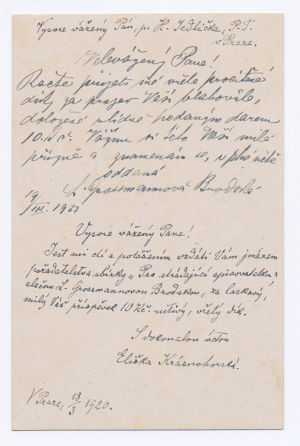 Vysoce vážený Pán, p. H. Jedlička, P. T.
v Praze.
Velevážený Pane!
Račte přijati mé vřelé
díky, za projev Vaší blahovůle,
doložené vlídně podaným darem
10 Kč. Vážím si této Vaší milé
přízně a znamenám se, v plné úctě
oddaná
L. Grossmannová Brodská
19/III. 1920
Vysoce vážený Pane!
Jest mi ctí a potěšením vzdáti Vám jménem
pořadatelstva sbírky „Pro strádající spisovatelku“
slečnu L. Grossmannovou Brodskou, za laskavý,
milý Váš příspěvek 10 Kč. uctivý, vřelý dík.
S dokonalou úctou
Eliška Krásnohorská.
V Praze, 18/3 1920.